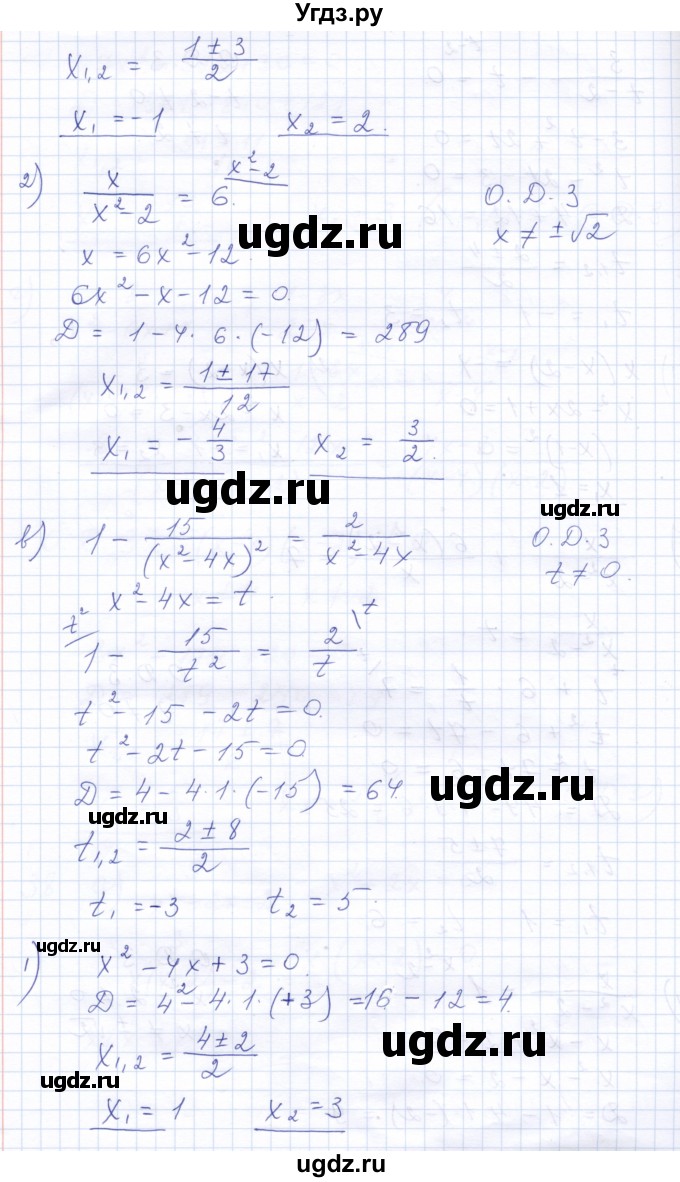 Угдз.ру
x₁,₂ = (1 ± 3)/2
x₁ = -1    x₂ = 2.
2) x/(x²-2) = 6. \x²-2    О.Д.З
x ≠ ±√2
ugdz.ru
x = 6x² - 12.
6x² - x - 12 = 0.
D = 1 - 4 · 6 · (-12) = 289
x₁,₂ = (1 ± 17)/12
x₁ = - 4/3    x₂ = 3/2.
ugdz.ru
ugdz.ru
в) 1 - 15/(x²-4x)² = 2/(x²-4x)    О.Д.З
t ≠ 0.
x² - 4x = t.
t²/ 1 - 15/t² = 2/t \t
t² - 15 - 2t = 0.
t² - 2t - 15 = 0
D = 4 - 4·1·(-15) = 64.
ugdz.ru
ugdz.ru
t₁,₂ = (2 ± 8)/2
t₁ = -3    t₂ = 5.
ugdz.ru
1) x² - 4x + 3 = 0.
D = 4² - 4·1·(+3) = 16 - 12 = 4.
x₁,₂ = (4 ± 2)/2
ugdz.ru
ugdz.ru
x₁ = 1    x₂ = 3
ugdz.ru